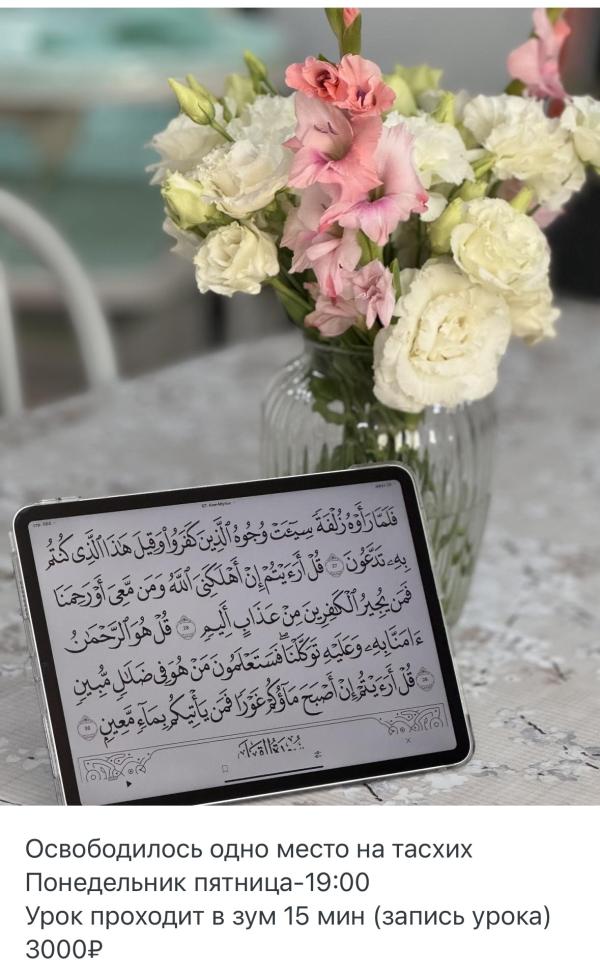 فَلَمَّا رَأَوْهُ زُلْفَةً سِيٓـَٔتْ وُجُوهُ ٱلَّذِينَ كَفَرُوا۟ وَقِيلَ هَٰذَا ٱلَّذِى كُنتُم
بِهِۦ تَدَّعُونَ 27 قُلْ أَرَءَيْتُمْ إِنْ أَهْلَكَنِىَ ٱللَّهُ وَمَن مَّعِىَ أَوْ رَحِمَنَا
فَمَن يُجِيرُ ٱلْكَٰفِرِينَ مِنْ عَذَابٍ أَلِيمٍ 28 قُلْ هُوَ ٱلرَّحْمَٰنُ
ءَامَنَّا بِهِۦ وَعَلَيْهِ تَوَكَّلْنَا ۖ فَسَتَعْلَمُونَ مَنْ هُوَ فِى ضَلَٰلٍ مُّبِينٍ
29 قُلْ أَرَءَيْتُمْ إِنْ أَصْبَحَ مَآؤُكُمْ غَوْرًا فَمَن يَأْتِيكُم بِمَآءٍ مَّعِينٍۭ 30
سُورَةُ القَلَمِ
Освободилось одно место на тасхих
Понедельник пятница-19:00
Урок проходит в зум 15 мин (запись урока)
3000₽